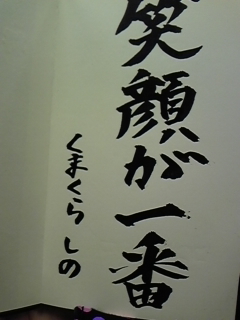 笑顔が一番
くまくら しの